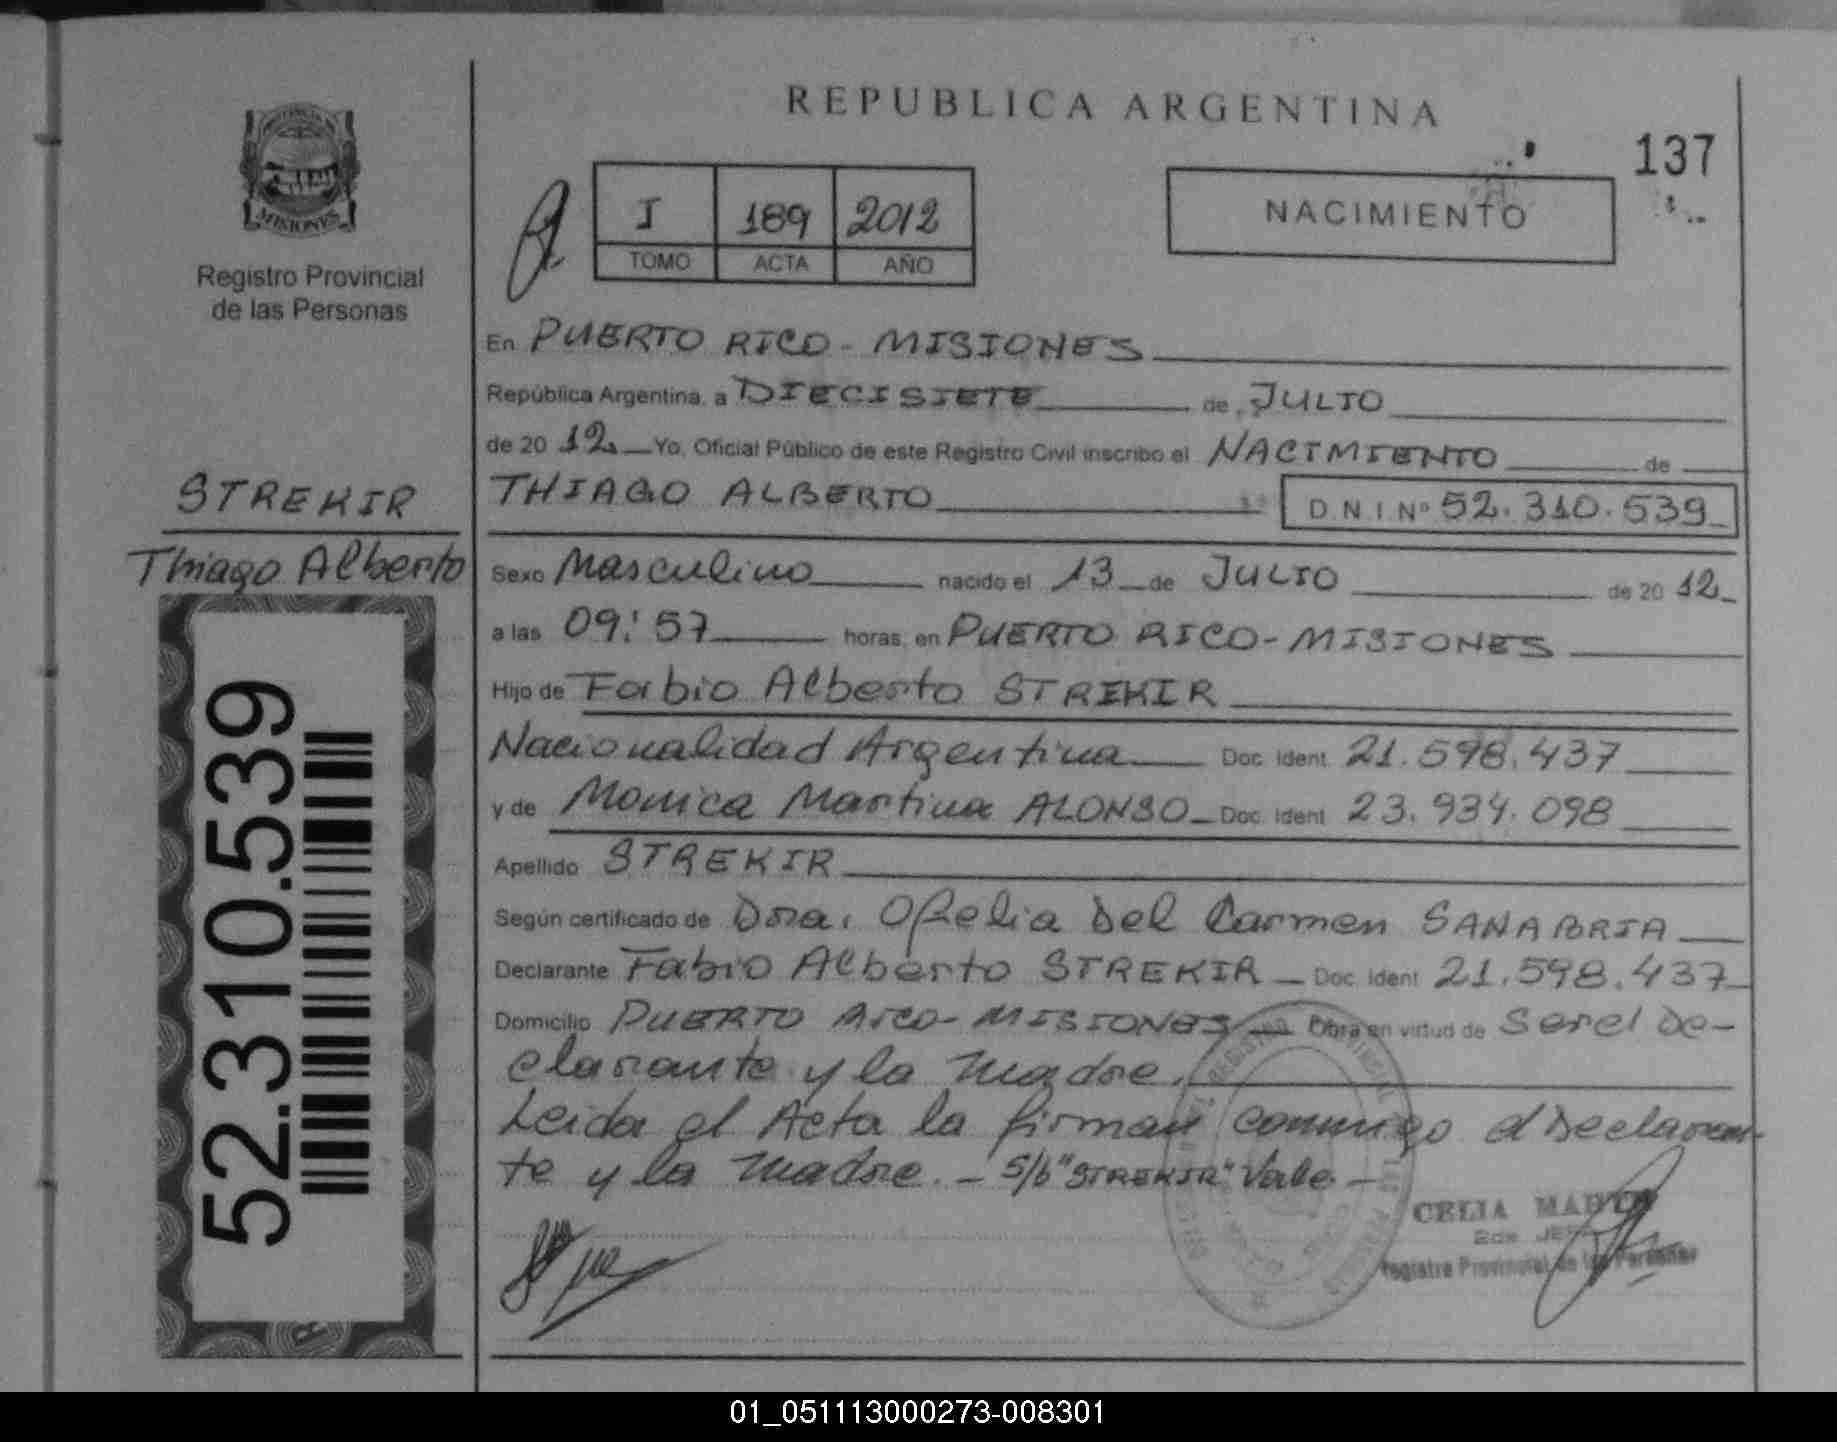 REPUBLICA ARGENTINA
137
MISIONES
Registro Provincial
de las Personas
I 189 2012
TOMO ACTA AÑO
NACIMIENTO
En PUERTO RICO - MISIONES
República Argentina, a DIECISIETE de JULIO
de 20 12 Yo, Oficial Público de este Registro Civil inscribo el NACIMIENTO de
THIAGO ALBERTO D.N.I. Nº 52.310.539
STREKIR
Thiago Alberto
52.310.539
Sexo Masculino nacido el 13 de JULIO de 20 12
a las 09:57 horas, en PUERTO RICO - MISIONES
Hijo de Fabio Alberto STREKIR
Nacionalidad Argentina Doc. Ident. 21.598.437
y de Monica Martina ALONSO Doc. Ident. 23.934.098
Apellido STREKIR
Según certificado de Dra. Ofelia Del Carmen SANABRIA
Declarante Fabio Alberto STREKIR Doc. Ident. 21.598.437
Domicilio PUERTO RICO - MISIONES Obra en virtud de Ser el De-
clarante y la Madre.
Leida el Acta la firman conmigo el Declaran-
te y la Madre. - S/b "STREKIR" Vale. -
CELIA
Registro Provincial de las Personas
01_051113000273-008301